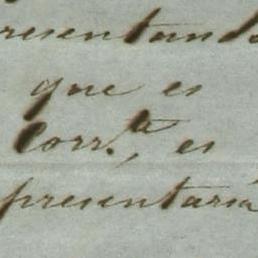 resentando
que es
Corr.ta, es
presentaria